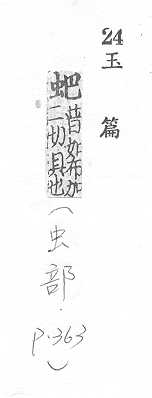 24
玉篇
蚆普加布加
二切貝也
(虫部.
p.363)